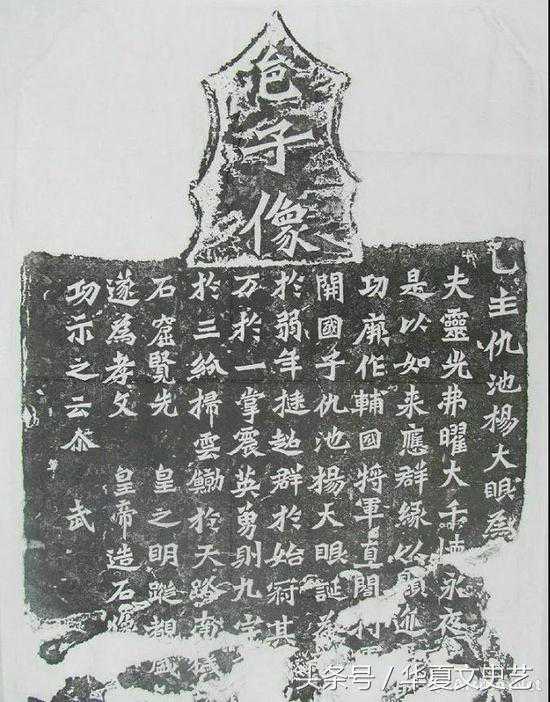 邑子像
邑主仇池楊大眼為
夫靈光弗曜大千懷永夜
是以如来應群緣以顯迹
功厥作輔國將軍直閤將
開國子仇池楊大眼誕承
於弱年挺超群於始冠其
万於一掌震英勇則九宇
於三紛掃雲鯨於天路南穢
石窟覽先 皇之明蹤覩盛
遂為孝文 皇帝造石像
功示之云尒 武
头条号 / 华夏文史艺